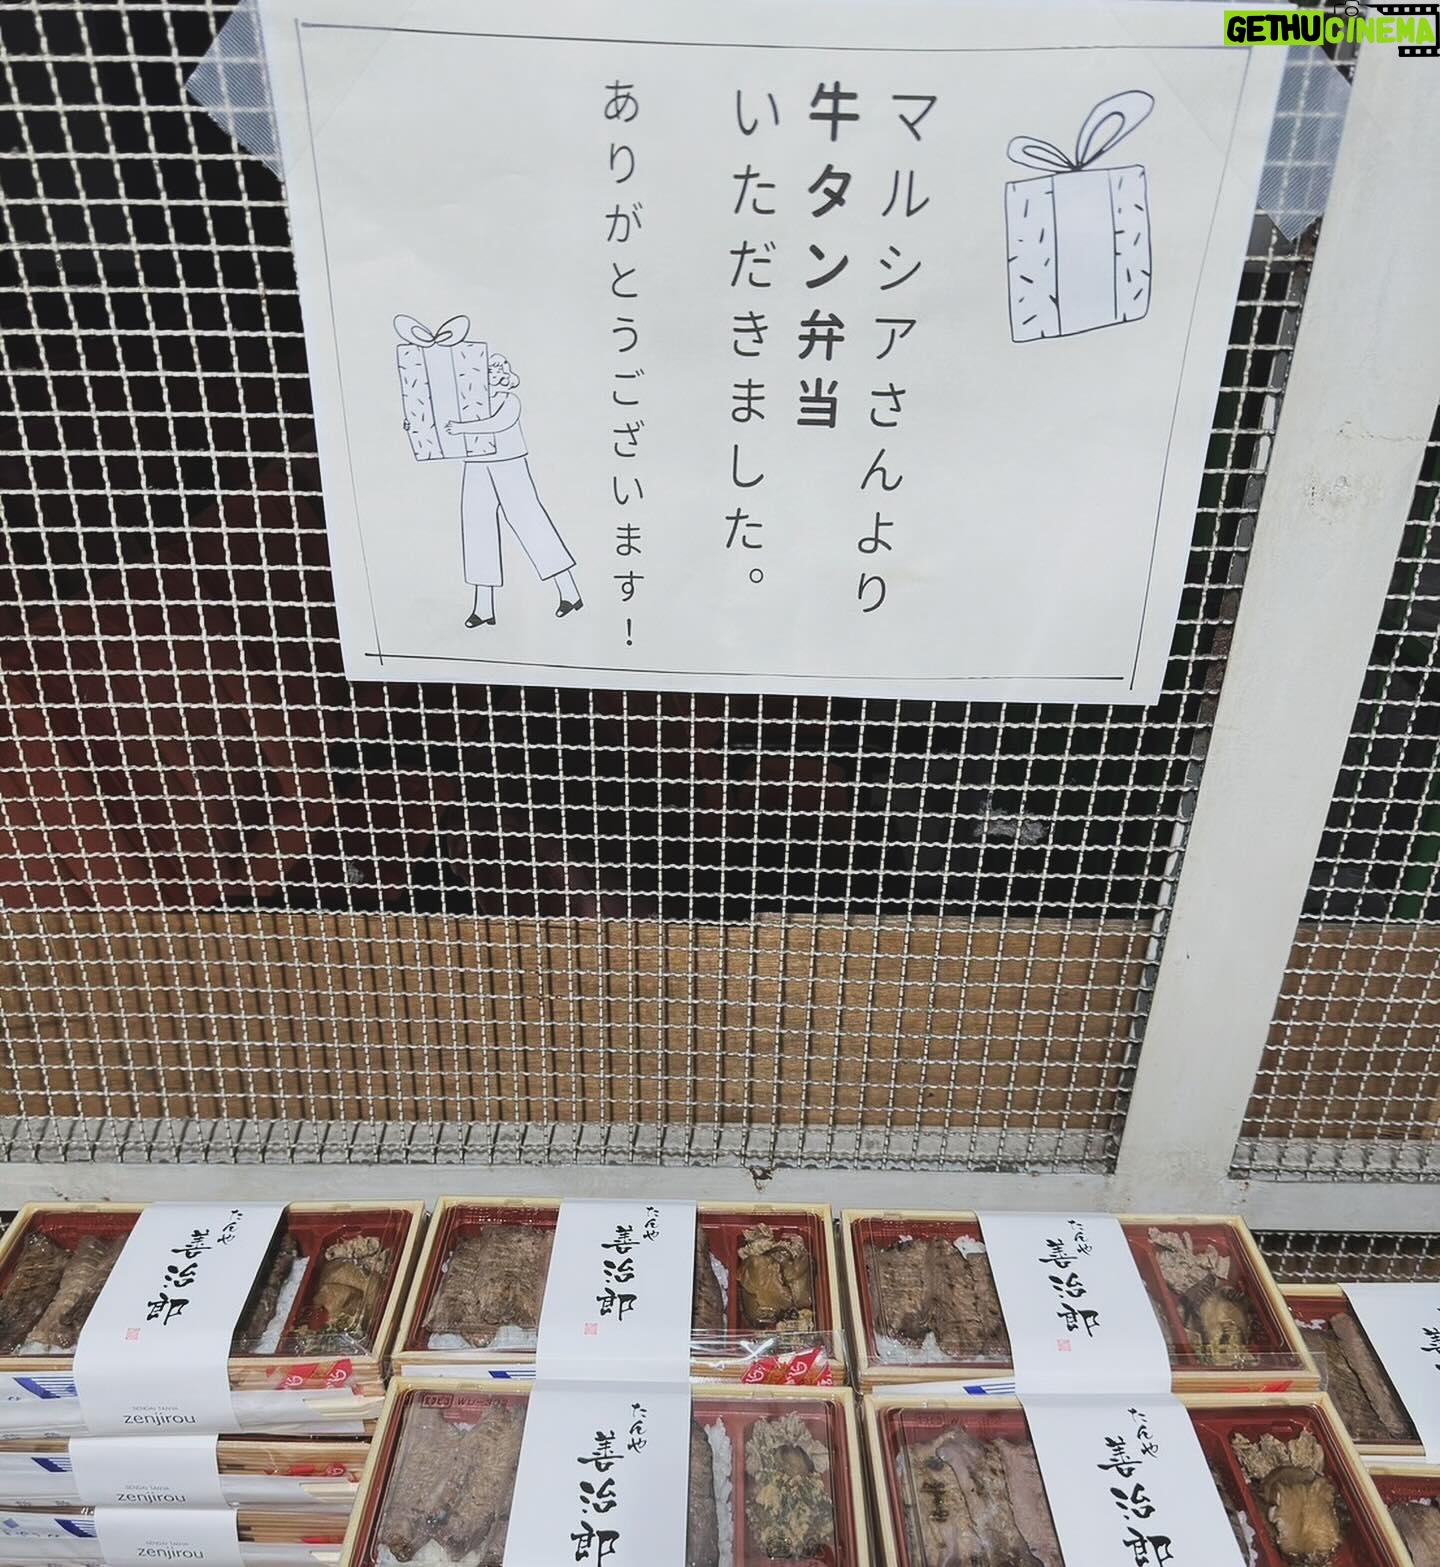 GETHUCINEMA
マルシアさんより
牛タン弁当
いただきました。
ありがとうございます！
たんや
善治郎
たんや
善治郎
たんや
善治郎
SENDAI TANYA
zenjirou
SENDAI TANYA
zenjirou
SENDAI TANYA
zenjirou
たんや
善治郎
たんや
善治郎